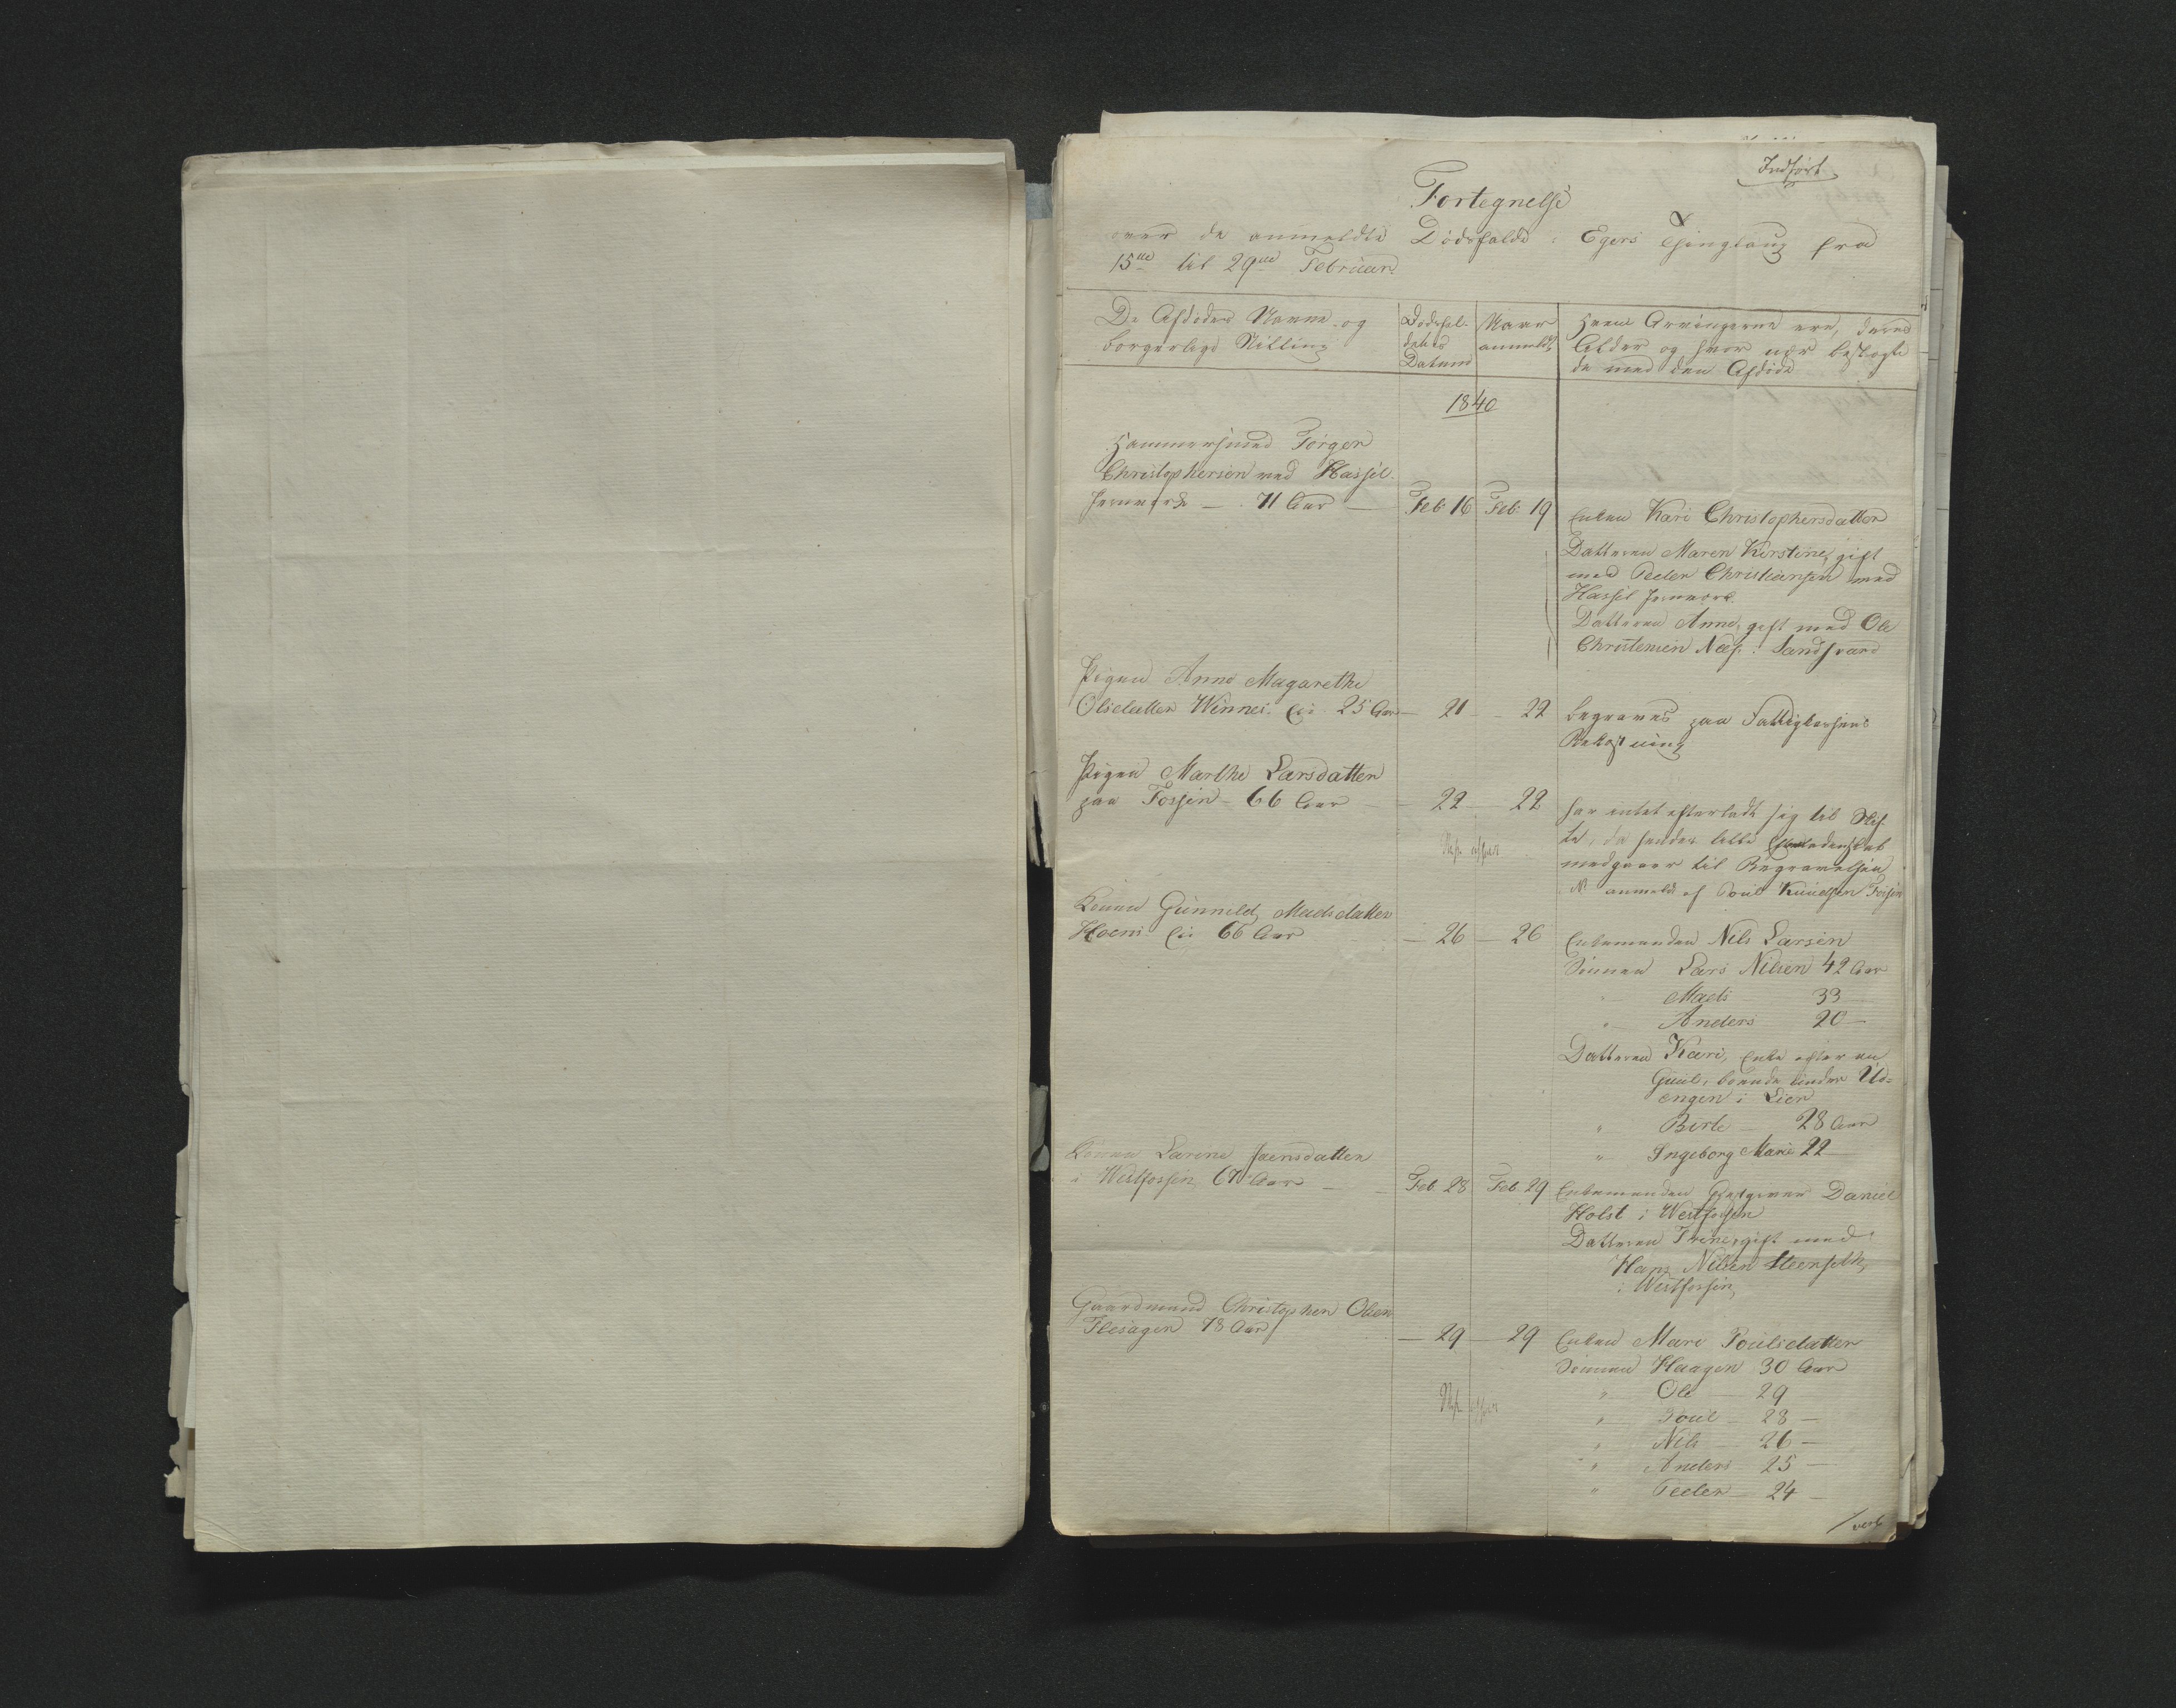 Indført
Fortegnelse
over de anmeldte Dødsfalde i Egers Thinglaug fra
15de til 29de Februar
De Afdødes Navne og
borgerlige Stilling
Dødsfal-
dets
Datum
Naar
anmeldt
Hvem Arvingerne ere, deres
Alder og hvor nær beslægtede
de med den Afdøde
1840
Hammersmed Jørgen
Christophersen ved Hassel
Jernværk — 71 Aar — Feb. 16 Feb. 19
Enken Kari Christophersdatter
Datteren Maren Kirstine, gift
med Peder Christiansen ved
Hassel Jernværk
Datteren Anne, gift med Ole
Christensen Næss i Sandsværd
Pigen Anne Magarethe
Olsdatter Winnes Eie 25 Aar — 21 — 22
begraves paa Fattigkassens
Bekostning
Pigen Marthe Larsdatter
paa Fossen 66 Aar — 22 — 22
har intet efterladt sig til Skif-
te, da hendes lille Efterladenskab
medgaaer til Begravelsen
NB anmeldt af Poul Knudsen Fossen
Konen Gunnild Madsdatter
Hoens Eie 66 Aar — 26 — 26
Enkemanden Nils Larsen
Sønnen Lars Nilsen 42 Aar
" — Mads 33 —
" — Anders 20 —
Datteren Kari, Enke efter en
Guul, boende under Ud-
engen i Lier
" Birte — 28 Aar
" Ingeborg Marie 22
Konen Larine Jaensdatter
i Westfossen 67 Aar — Feb. 28 Feb. 29
Enkemanden Gjestgiver Daniel
Holst i Westfossen
Datteren Trine, gift med
Hans Nilsen Steenseth
i Westfossen
Gaardmand Christopher Olsen
Flesagen 78 Aar — 29 — 29
Enken Mari Poulsdatter
Sønnen Haagen 30 Aar
" Ole — 29
" Poul — 28 —
" Nils — 26 —
" Anders 25 —
" Peder 24 —
/vert